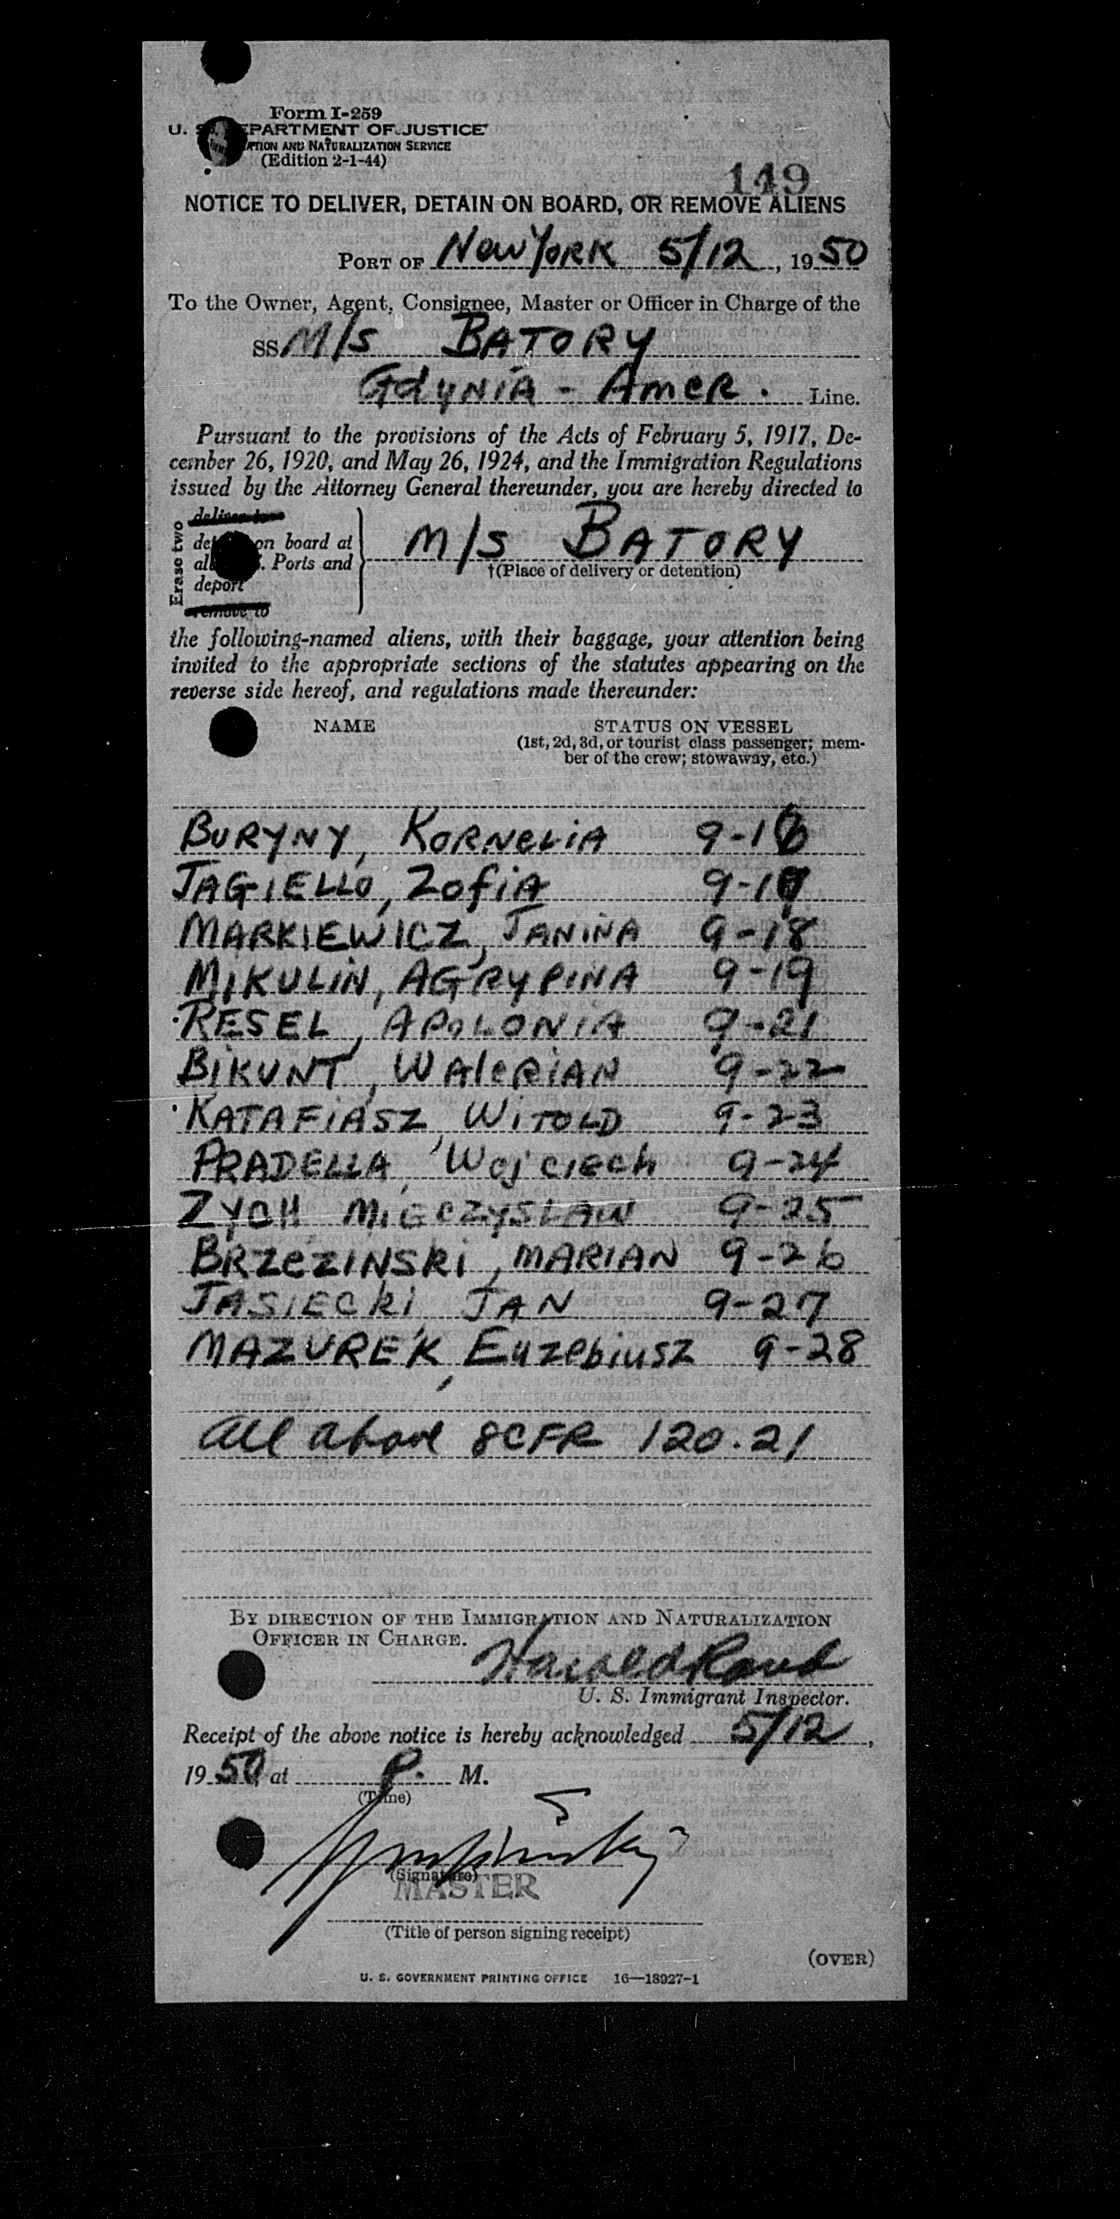 Form I-259
U. S. DEPARTMENT OF JUSTICE
AND NATURALIZATION SERVICE
(Edition 2-1-44)
149
NOTICE TO DELIVER, DETAIN ON BOARD, OR REMOVE ALIENS
PORT OF New York 5/12, 1950
To the Owner, Agent, Consignee, Master or Officer in Charge of the
SS M/S BATORY
Gdynia - Amer. Line.
Pursuant to the provisions of the Acts of February 5, 1917, De-
cember 26, 1920, and May 26, 1924, and the Immigration Regulations
issued by the Attorney General thereunder, you are hereby directed to
Erase two
deliver to
on board at
Ports and
deport
remove to
M/S BATORY
†(Place of delivery or detention)
the following-named aliens, with their baggage, your attention being
invited to the appropriate sections of the statutes appearing on the
reverse side hereof, and regulations made thereunder:
NAME STATUS ON VESSEL
(1st, 2d, 3d, or tourist class passenger; mem-
ber of the crew; stowaway, etc.)
BURYNY, KORNELIA 9-16
JAGIELLO, Zofia 9-17
MARKIEWICZ, JANINA 9-18
MIKULIN, AGRYPINA 9-19
RESEL, APOLONIA 9-21
BIKUNT, WALERIAN 9-22
KATAFIASZ, WITOLD 9-23
PRADELLA, Wojciech 9-24
ZYCH MIECZYSLAW 9-25
BRZEZINSKI, MARIAN 9-26
JASIECKI, JAN 9-27
MAZUREK, Euzebiusz 9-28
All above 8CFR 120.21
BY DIRECTION OF THE IMMIGRATION AND NATURALIZATION
OFFICER IN CHARGE.
U. S. Immigrant Inspector.
Receipt of the above notice is hereby acknowledged 5/12,
1950, at P. M.
(Time)
(Signature)
MASTER
(Title of person signing receipt)
(OVER)
U. S. GOVERNMENT PRINTING OFFICE 16—18927-1